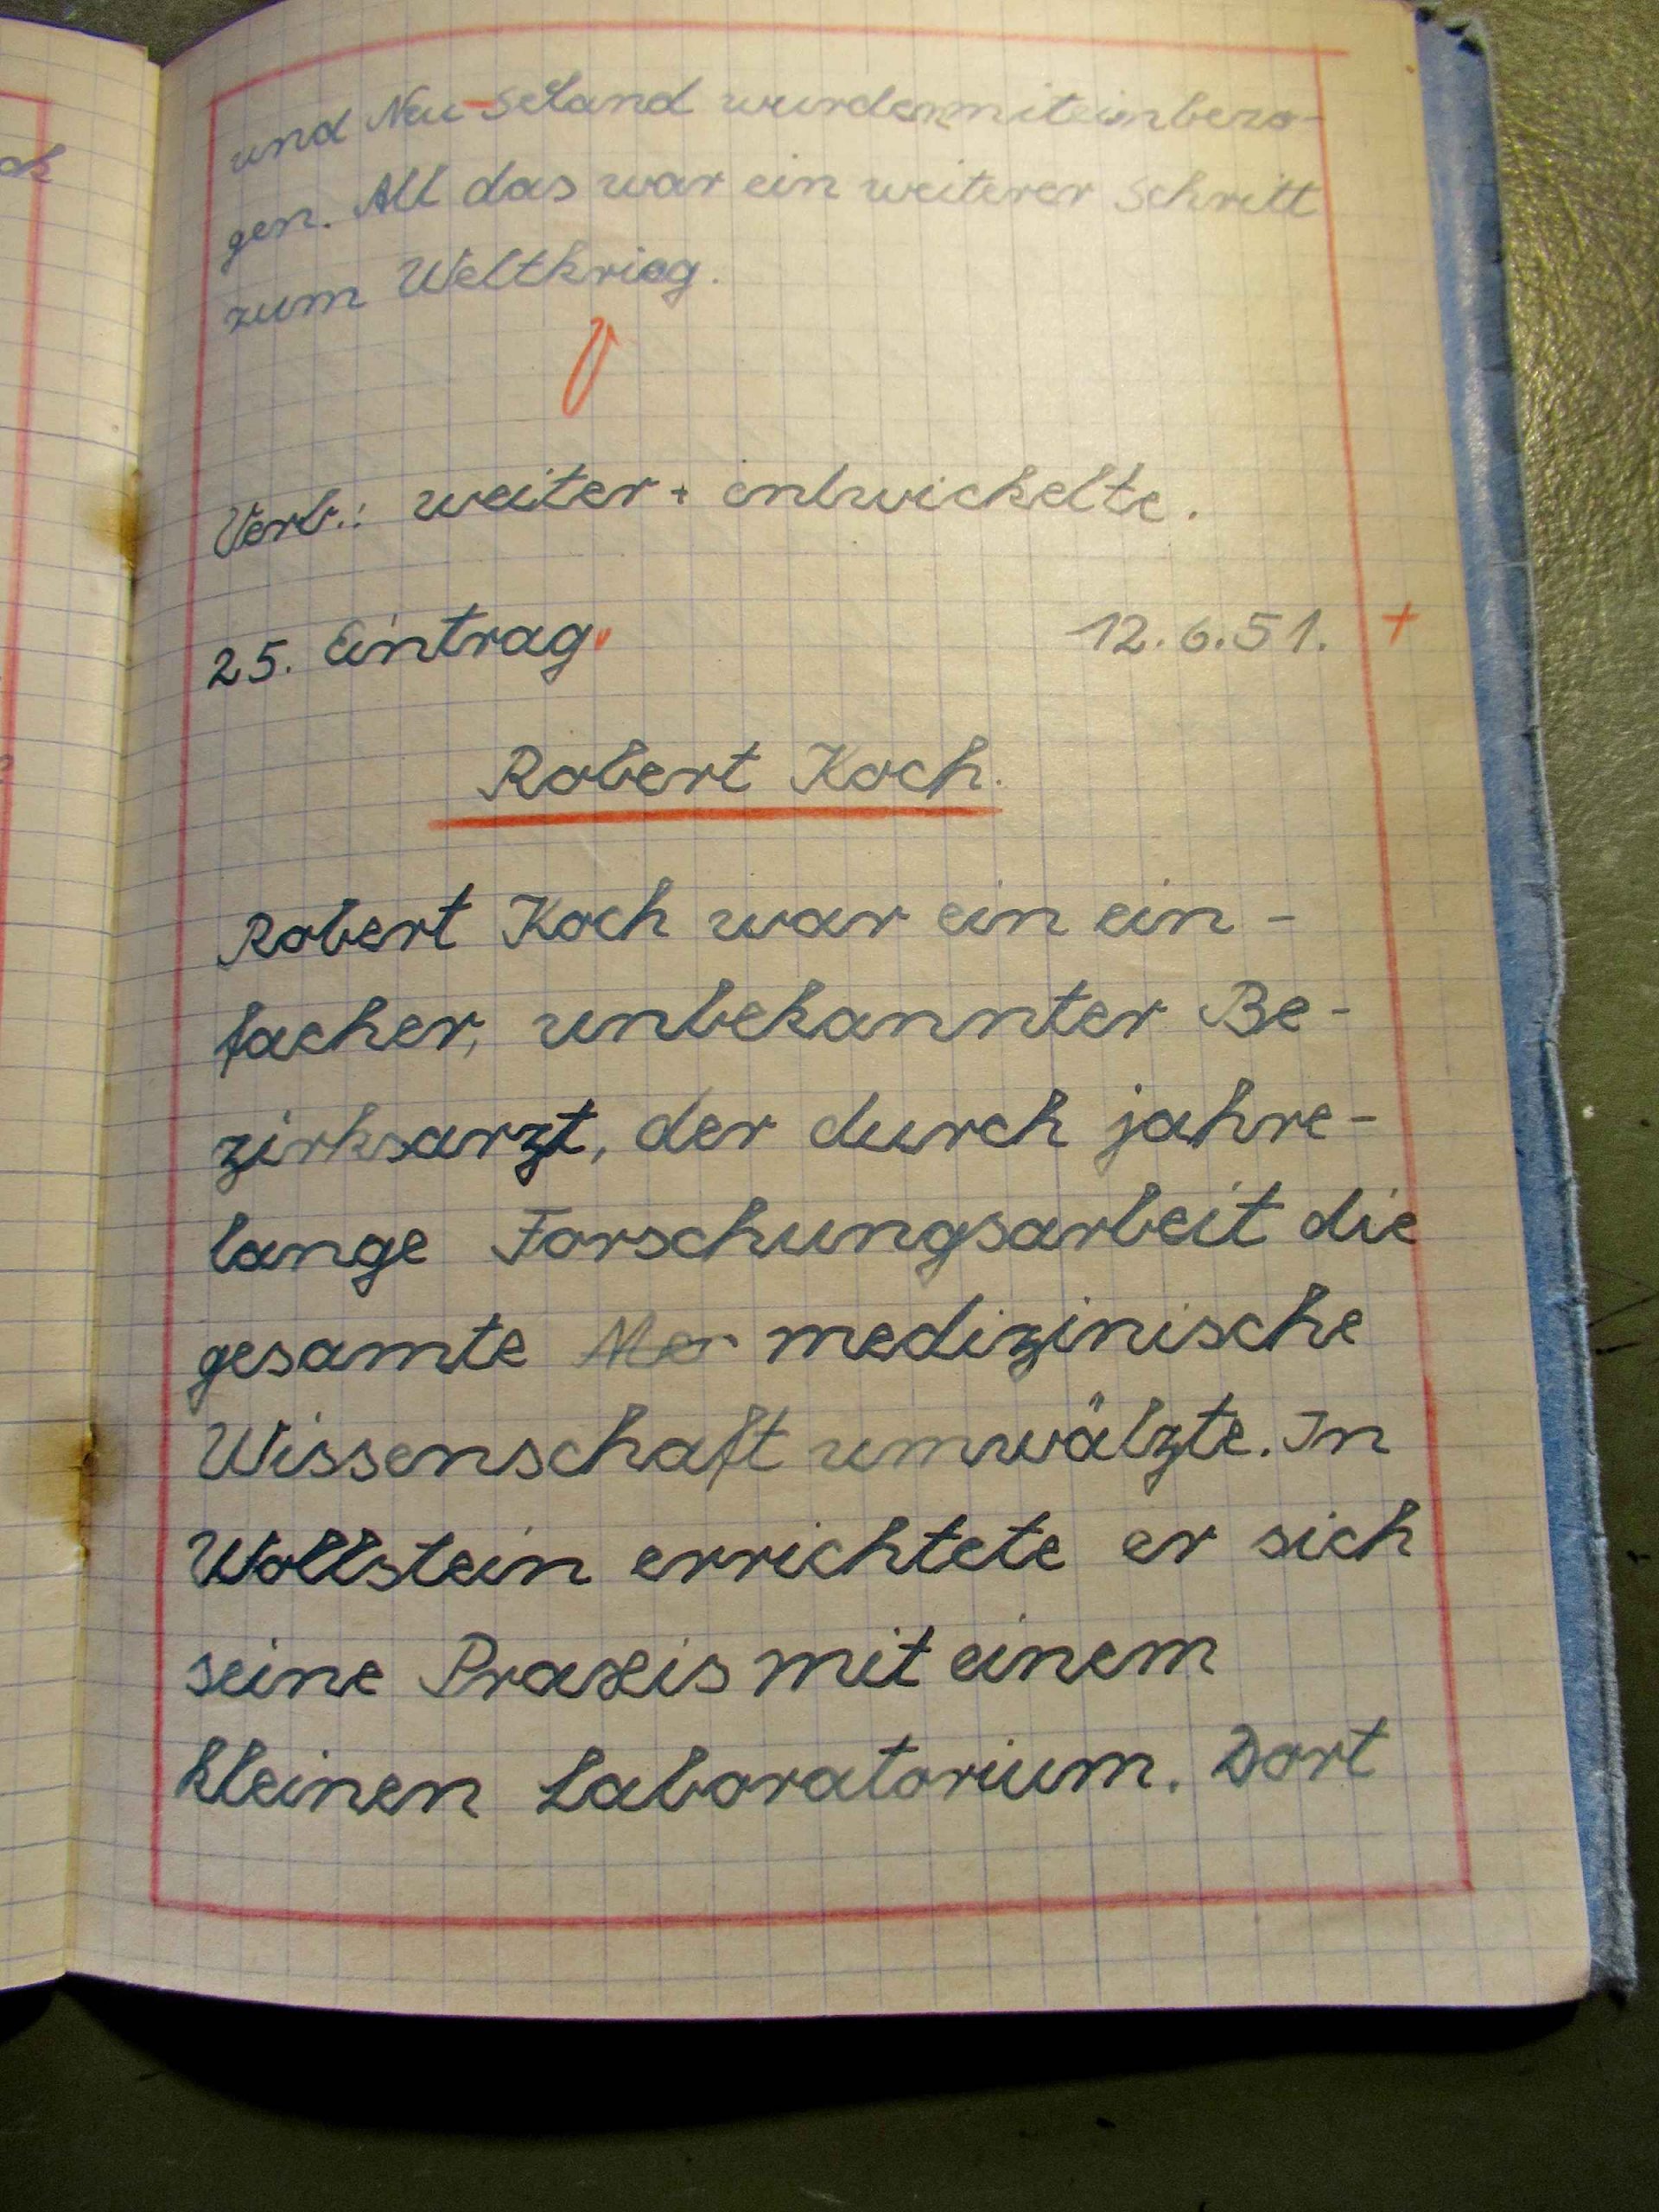 und Neu-Seland wurden miteinbezo-
gen. All das war ein weiterer Schritt
zum Weltkrieg.
Verb.: weiter + entwickelte.
25. Eintrag. 12.6.51. +
Robert Koch.
Robert Koch war ein ein-
facher, unbekannter Be-
zirksarzt, der durch jahre-
lange Forschungsarbeit die
gesamte Me medizinische
Wissenschaft umwälzte. In
Wollstein errichtete er sich
seine Praxis mit einem
kleinen Laboratorium. Dort